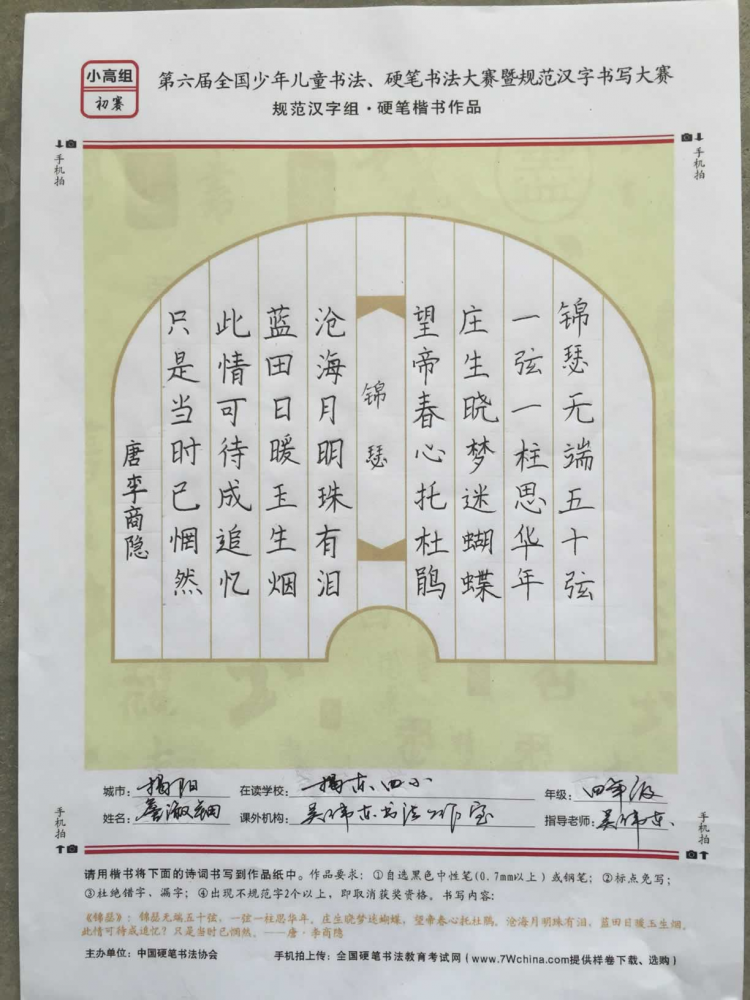 小高组
初赛
第六届全国少年儿童书法、硬笔书法大赛暨规范汉字书写大赛
规范汉字组·硬笔楷书作品
手机拍
手机拍
锦瑟无端五十弦
一弦一柱思华年
庄生晓梦迷蝴蝶
望帝春心托杜鹃
锦瑟
沧海月明珠有泪
蓝田日暖玉生烟
此情可待成追忆
只是当时已惘然
唐李商隐
城市：揭阳 在读学校：揭东四小 年级：四年级
姓名： 课外机构：吴伟东书法工作室 指导老师：吴伟东
手机拍
手机拍
请用楷书将下面的诗词书写到作品纸中。作品要求：①自选黑色中性笔(0.7mm以上)或钢笔；②标点免写；
③杜绝错字、漏字；④出现不规范字2个以上，即取消获奖资格。书写内容：
《锦瑟》：锦瑟无端五十弦，一弦一柱思华年。庄生晓梦迷蝴蝶，望帝春心托杜鹃。沧海月明珠有泪，蓝田日暖玉生烟。
此情可待成追忆？只是当时已惘然。——唐·李商隐
主办单位：中国硬笔书法协会 手机拍上传：全国硬笔书法教育考试网(www.7Wchina.com提供样卷下载、选购)